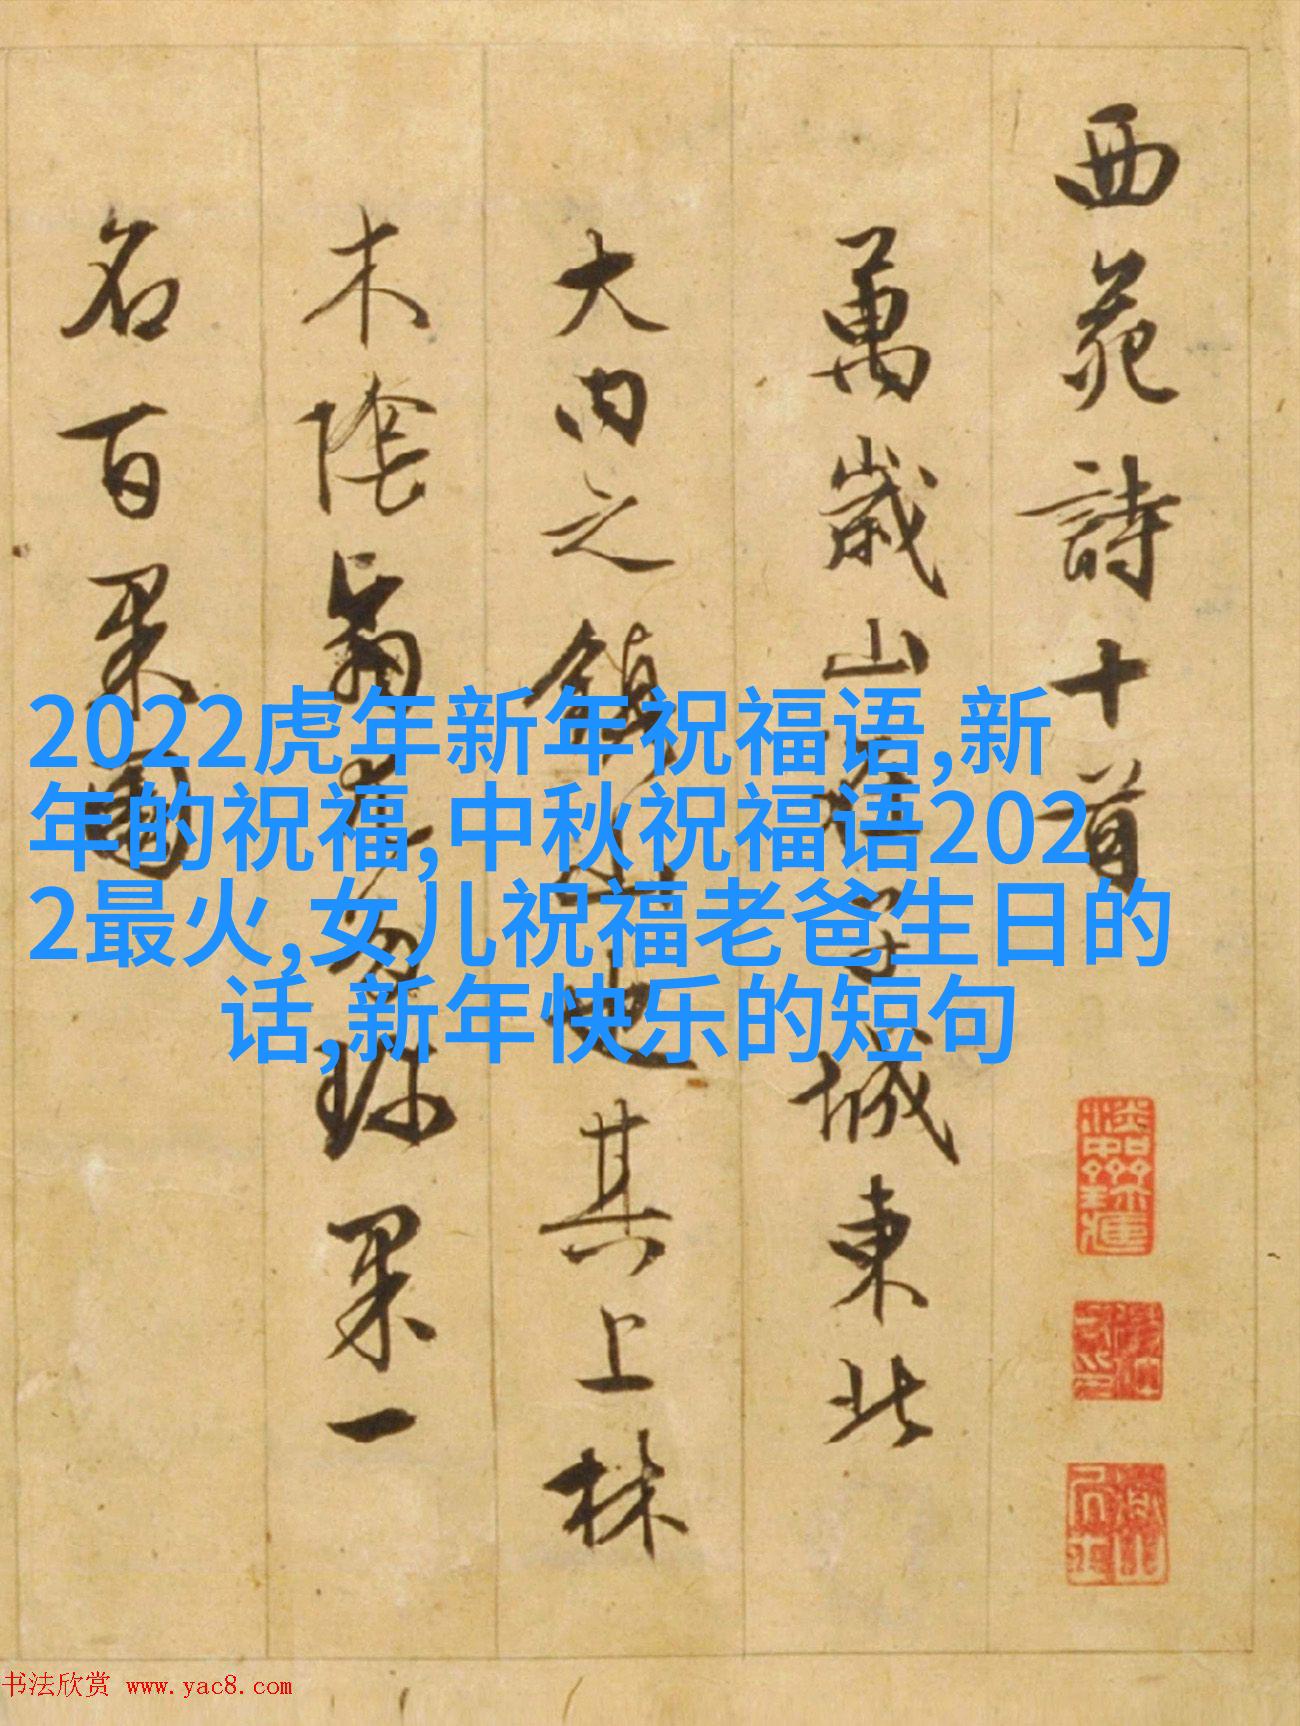 西苑詩十首
萬歲山在子城東北
大内之鎮山也其上林
木陰翳尤多珍果一
名百果園
2022虎年新年祝福语,新
年的祝福,中秋祝福语202
2最火,女儿祝福老爸生日的
话,新年快乐的短句
书法欣赏 www.yac8.com